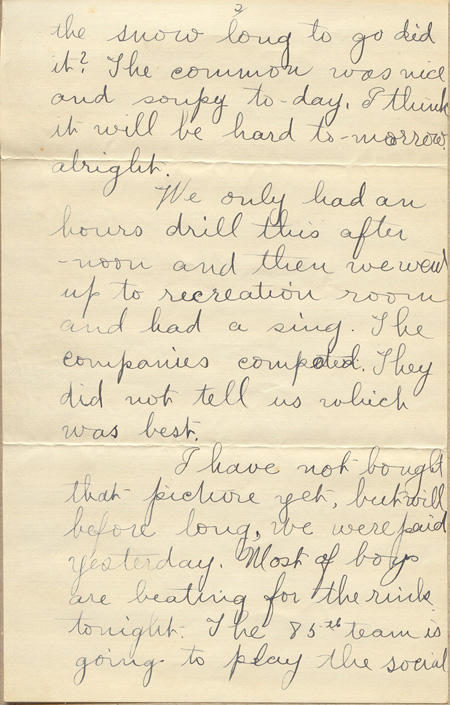 2
the snow long to go did
it? The common was nice
and soupy to-day. I think
it will be hard to-morrow
alright.
We only had an
hours drill this after
-noon and then we went
up to recreation room
and had a sing. The
companies competed. They
did not tell us which
was best.
I have not bought
that picture yet, but will
before long, we were paid
yesterday. Most of boys
are beating for the rink
tonight. The 85th team is
going to play the social